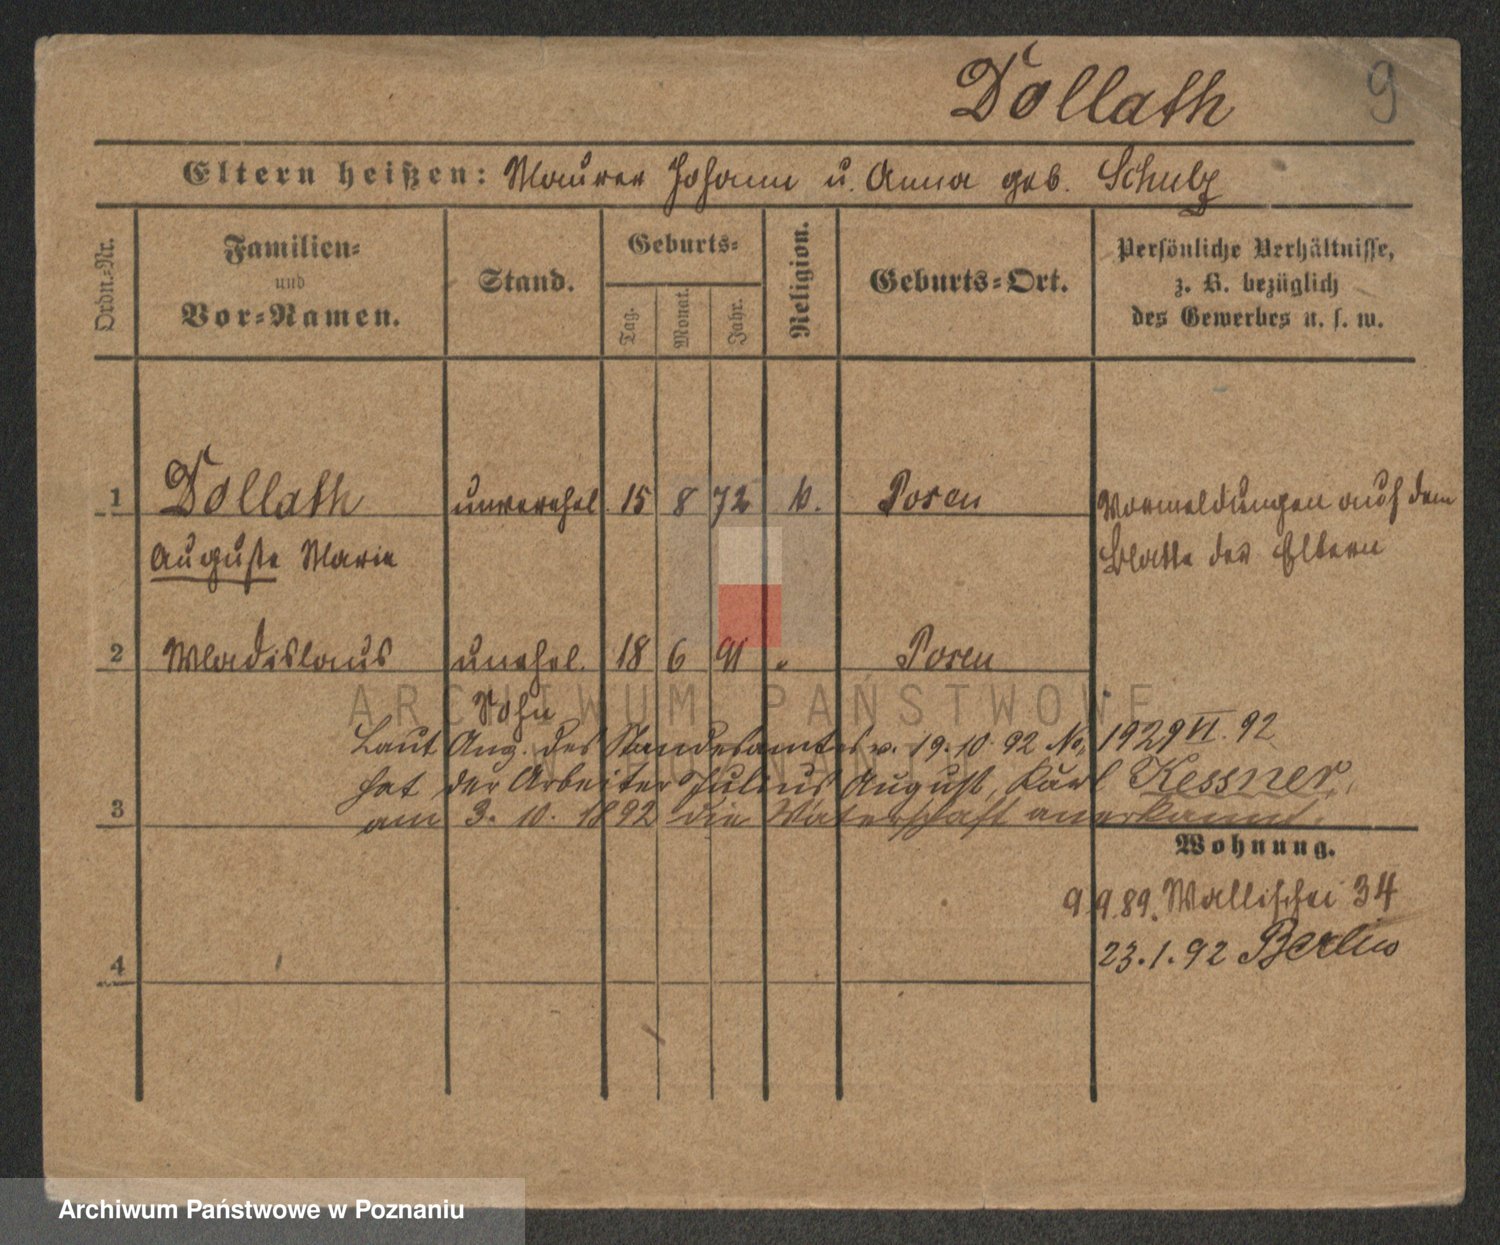 Dollath 9
Eltern heißen: Maurer Johann u. Anna geb. Schulz
Ordn.-Nr.
Familien-
und
Vor-Namen.
Stand.
Geburts-
Tag.
Monat.
Jahr.
Religion.
Geburts-Ort.
Persönliche Verhältnisse,
z. B. bezüglich
des Gewerbes u. s. w.
1 Dollath unverehel. 15 8 72 k. Posen Vormeldungen auf dem
Auguste Marie Blatte der Eltern
2 Wladislaus unehel. 18 6 91 " Posen
Sohn
Laut Anz. des Standesamtes v. 19.10.92 No. 1929 VI. 92
hat der Arbeiter Julius August, Karl Kessner,
3 am 3. 10. 1892 die Vaterschaft anerkannt.
Wohnung.
9.9.89. Wallischei 34
4 23.1.92 Berlin
ARCHIWUM PAŃSTWOWE
W POZNANIU
Archiwum Państwowe w Poznaniu